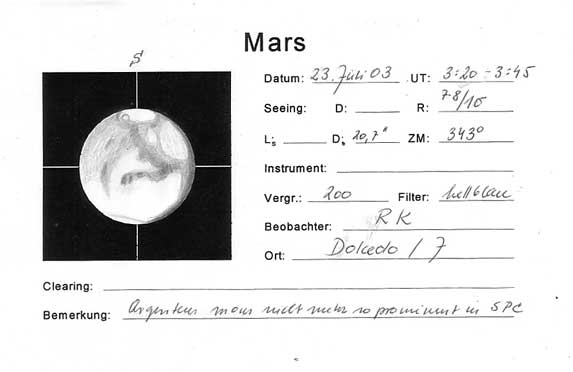 Mars
S
Datum: 23. Juli 03 UT: 3:20 - 3:45
Seeing: D: R: 7-8/10
Ls D: 20,7" ZM: 343°
Instrument:
Vergr.: 200 Filter: hellblau
Beobachter: RK
Ort: Dolcedo / I
Clearing:
Bemerkung: Argenteus mons nicht mehr so prominent in SPC